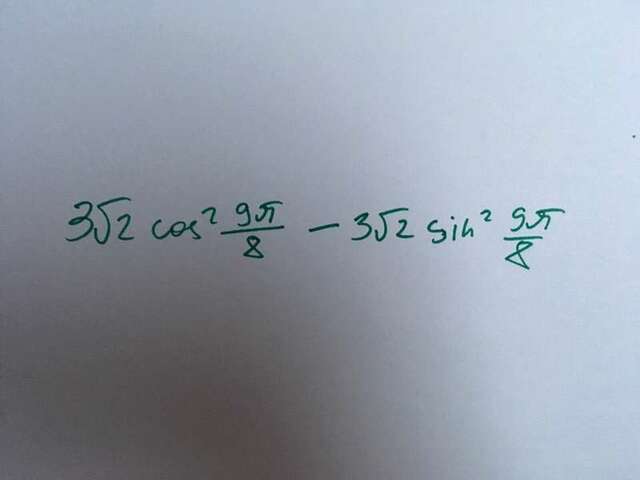 3√2 cos² 9π/8 − 3√2 sin² 9π/8